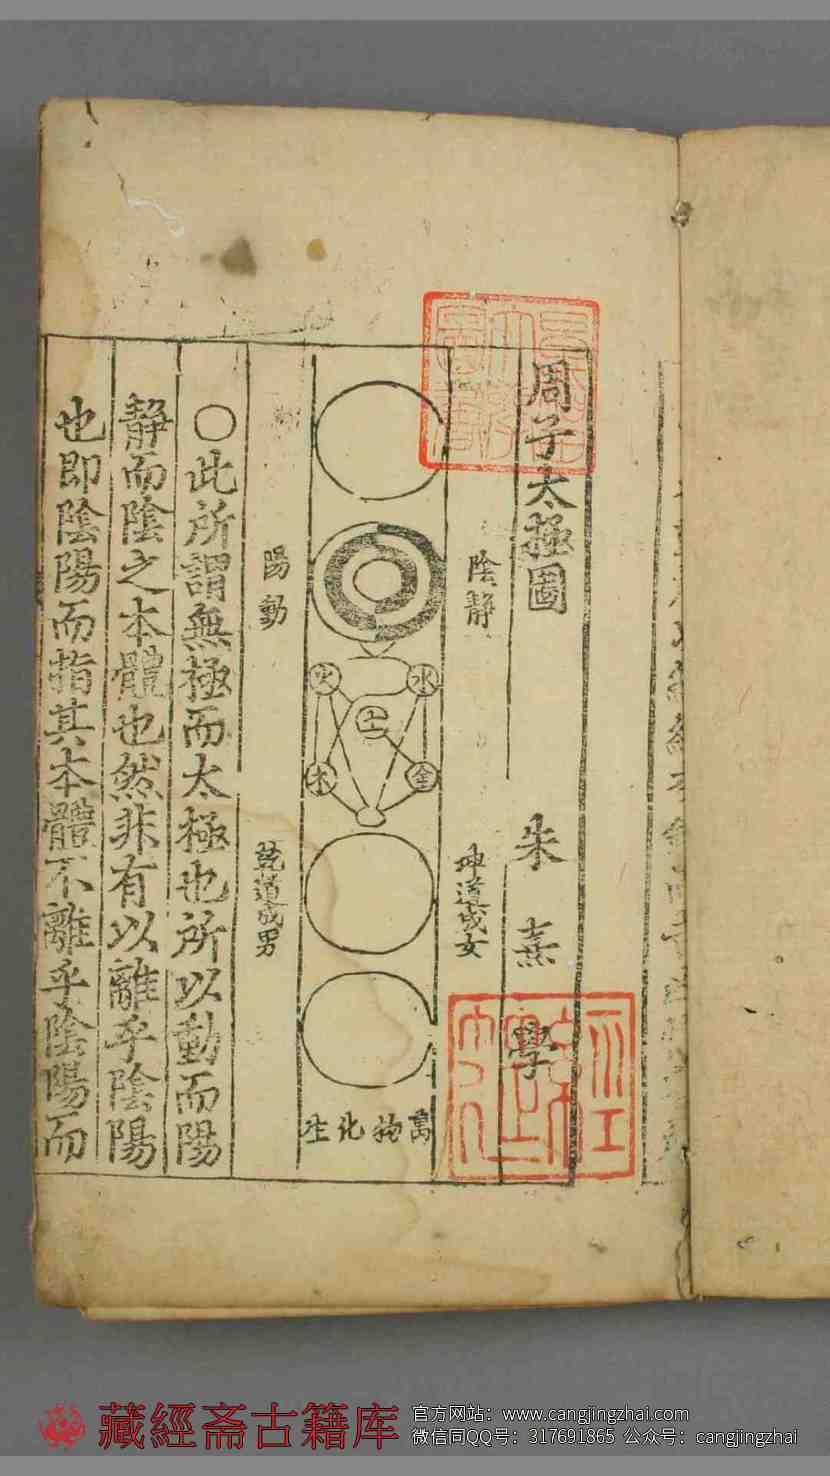 周子太極圖
朱熹學
陰靜
坤道成女
火
水
土
木
金
萬物化生
陽動
乾道成男
○此所謂無極而太極也所以動而陽
靜而陰之本體也然非有以離乎陰陽
也即陰陽而指其本體不離乎陰陽而
藏經斋古籍库
官方网站：www.cangjingzhai.com
微信同QQ号：317691865 公众号：cangjingzhai